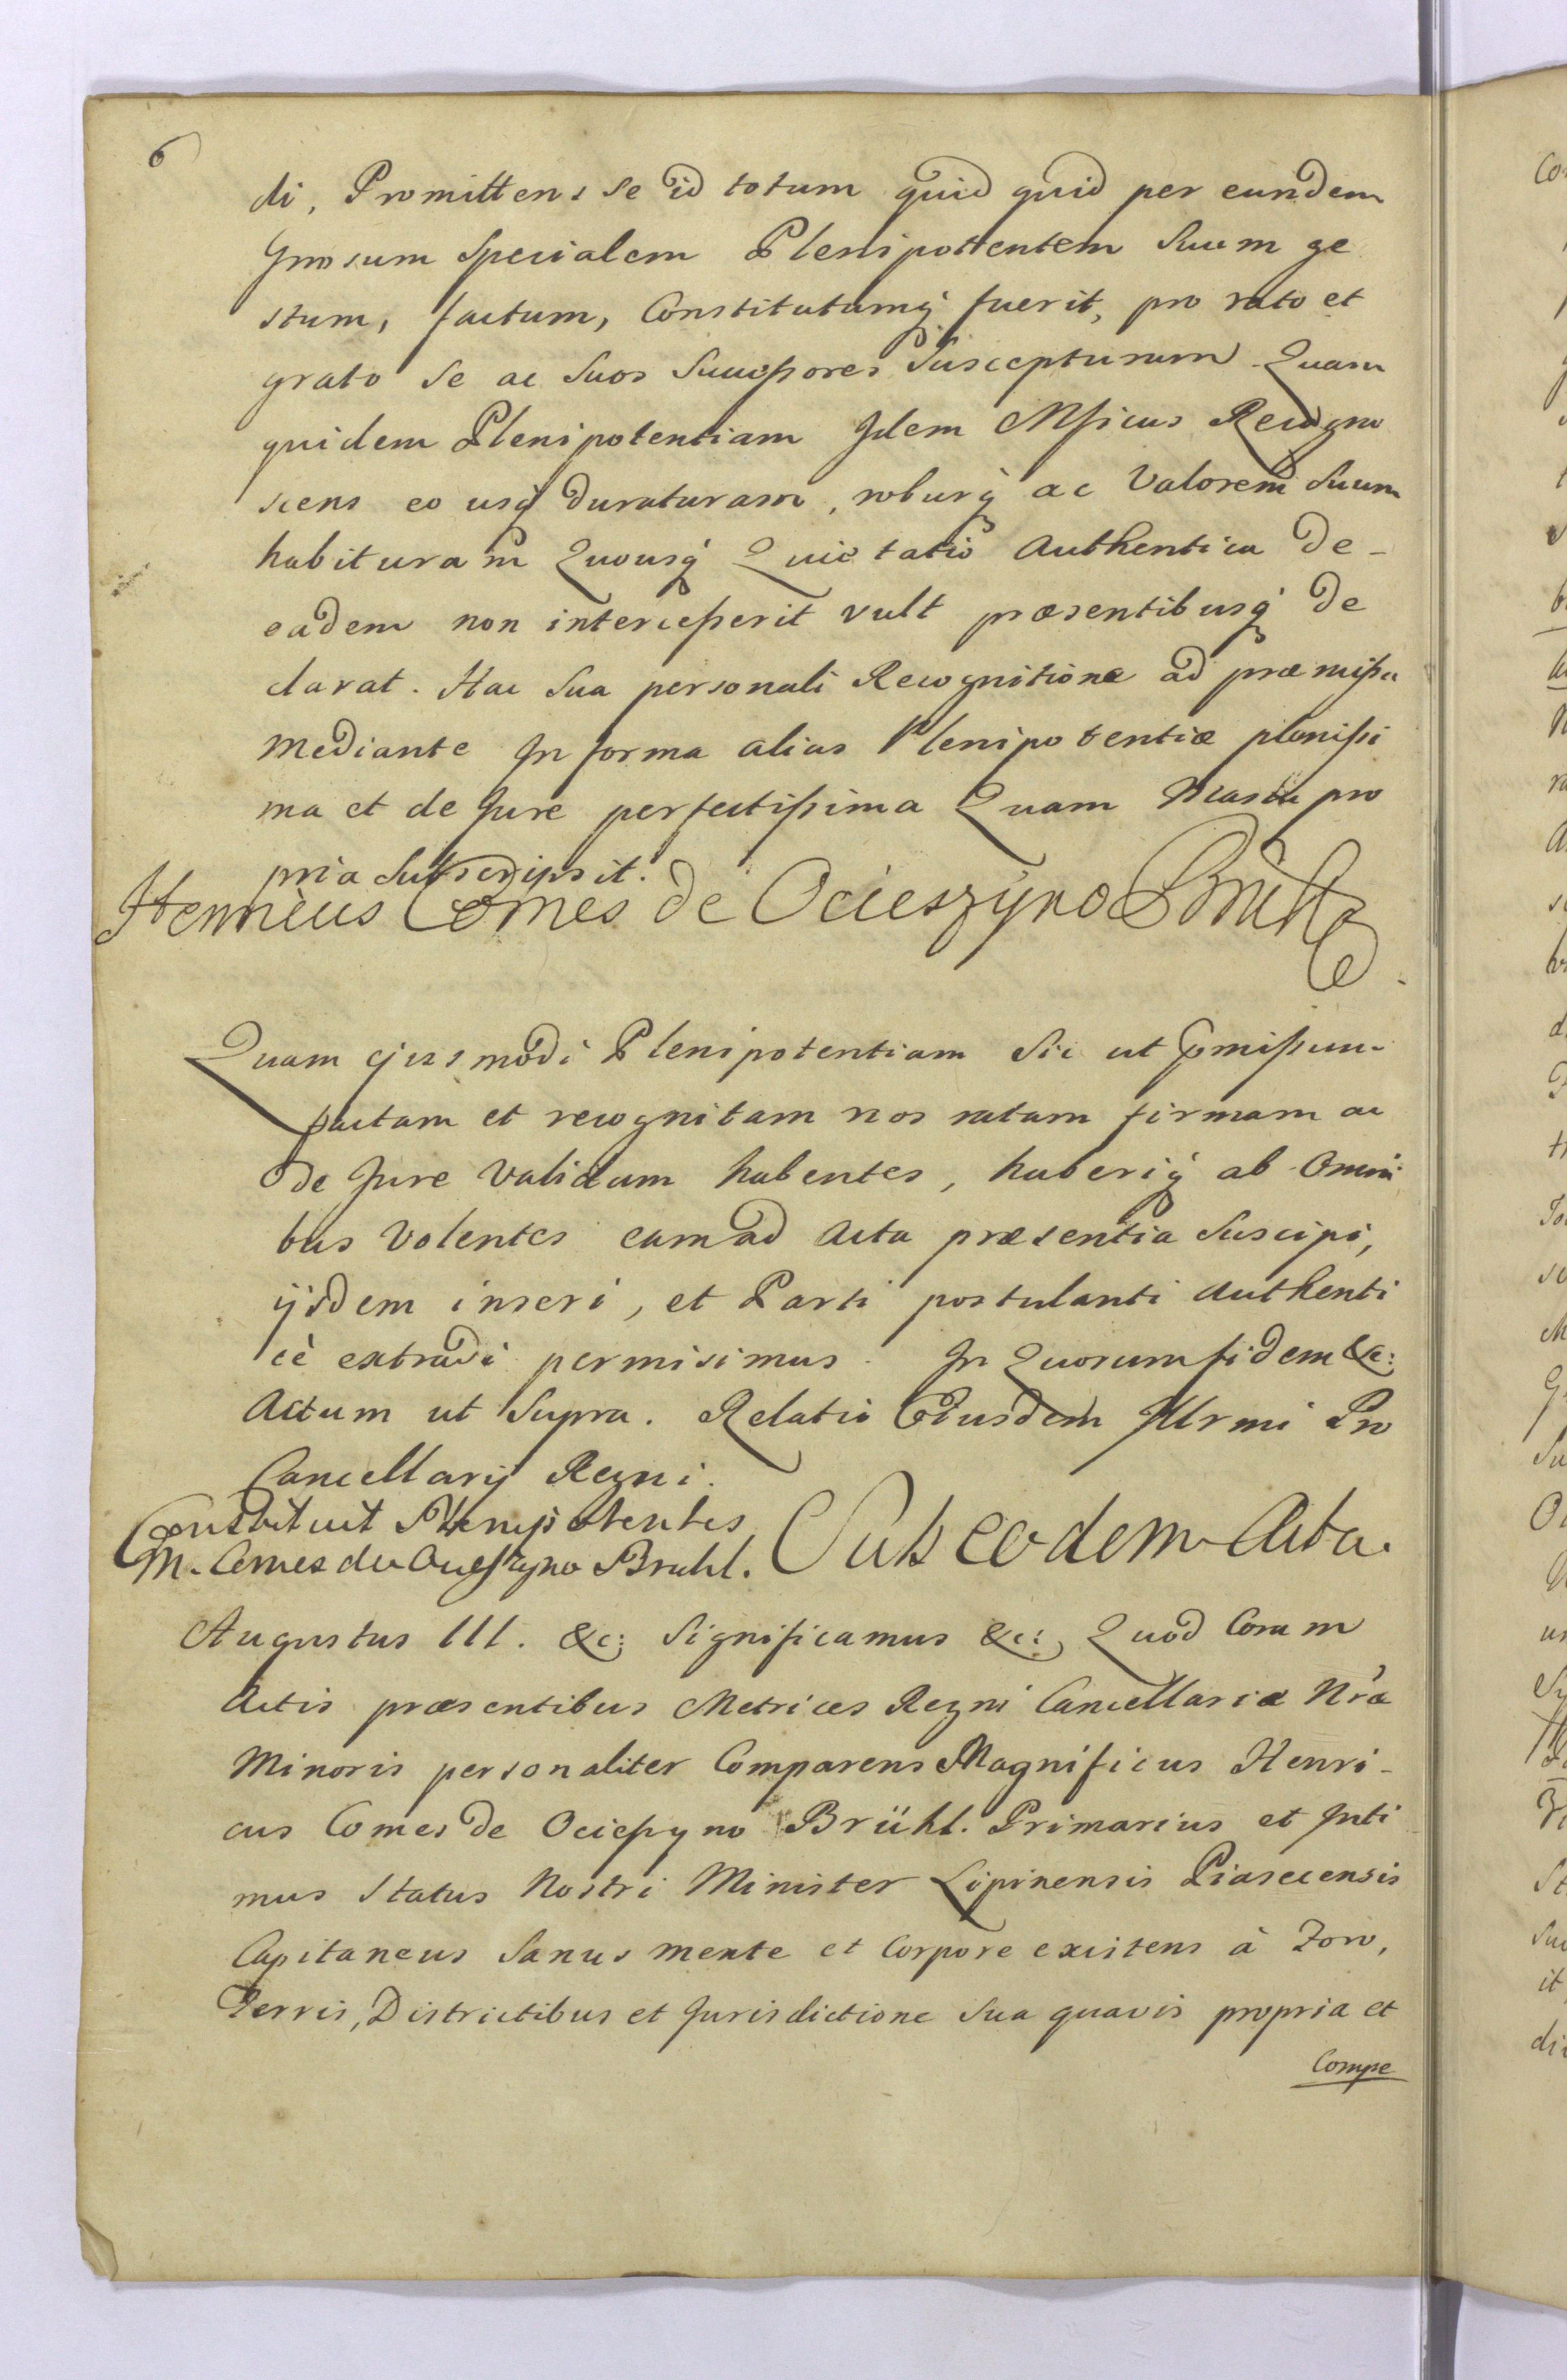 6
di, Promittens se id totum quid quid per eundem
Gnosum Specialem Plenipottentem Suum ge
stum, factum, Constitutumq́ fuerit, pro rato et
grato Se ac Suos Successores Suscepturum Quam
quidem Plenipotentiam Idem Mficus Recogno
scens eo usq́ duraturam, roburq́ ac Valorem Suum
habituram Quousq́ Quietatio Authentica de-
eadem non intercesserit vult præsentibusq́ de
clarat. Hac Sua personali Recognitione ad præmissa
Mediante In forma alias Plenipotentiæ plenissi
ma et de Jure perfectissima Quam Manu pro
pria Subscripsit.
Henricus Comes de Ocieszyno Brühl
Quam ejusmodi Plenipotentiam Sic ut
factam et recognitam nos ratam firmam ac
de Jure Validam habentes, haberiq́ ab Omni
bus Volentes eam ad Acta præsentia Suscipi,
ijsdem inseri, et Parti postulanti Authenti
cè extradi permisimus. In Quorum fidem &c:
Actum ut Supra. Relatio Ejusdem Illrmi Pro
Cancellarij Regni.
Constituit Plenipotentes
M. Comes de Ocieszyno Bruhl.
Sub eodem Acta.
Augustus III. &c: Significamus &c: Quod Coram
Actis præsentibus Metrices Regni Cancellariæ Nræ
Minoris personaliter Comparens Magnificus Henri-
cus Comes de Ociessyno Brühl. Primarius et Inti
mus Status Nostri Minister Lipinensis Piasecensis
Capitaneus Sanus mente et Corpore existens à Foro,
Terris, Districtibus et Jurisdictione Sua quavis propria et
Compe